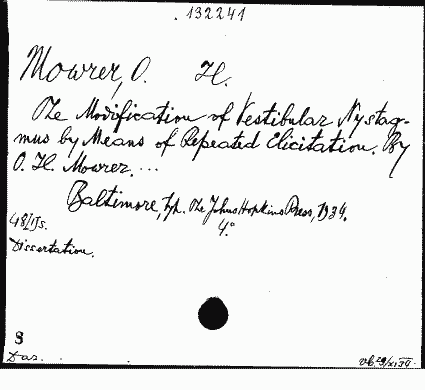 132241
Mowrer, O. H.
The Modification of Vestibular Nystag-
mus by Means of Repeated Elicitation. By
O. H. Mowrer. ...
Baltimore, typ. The Johns Hopkins Press, 1934.
4°
48/IJs.
Dissertation.
8
Das.